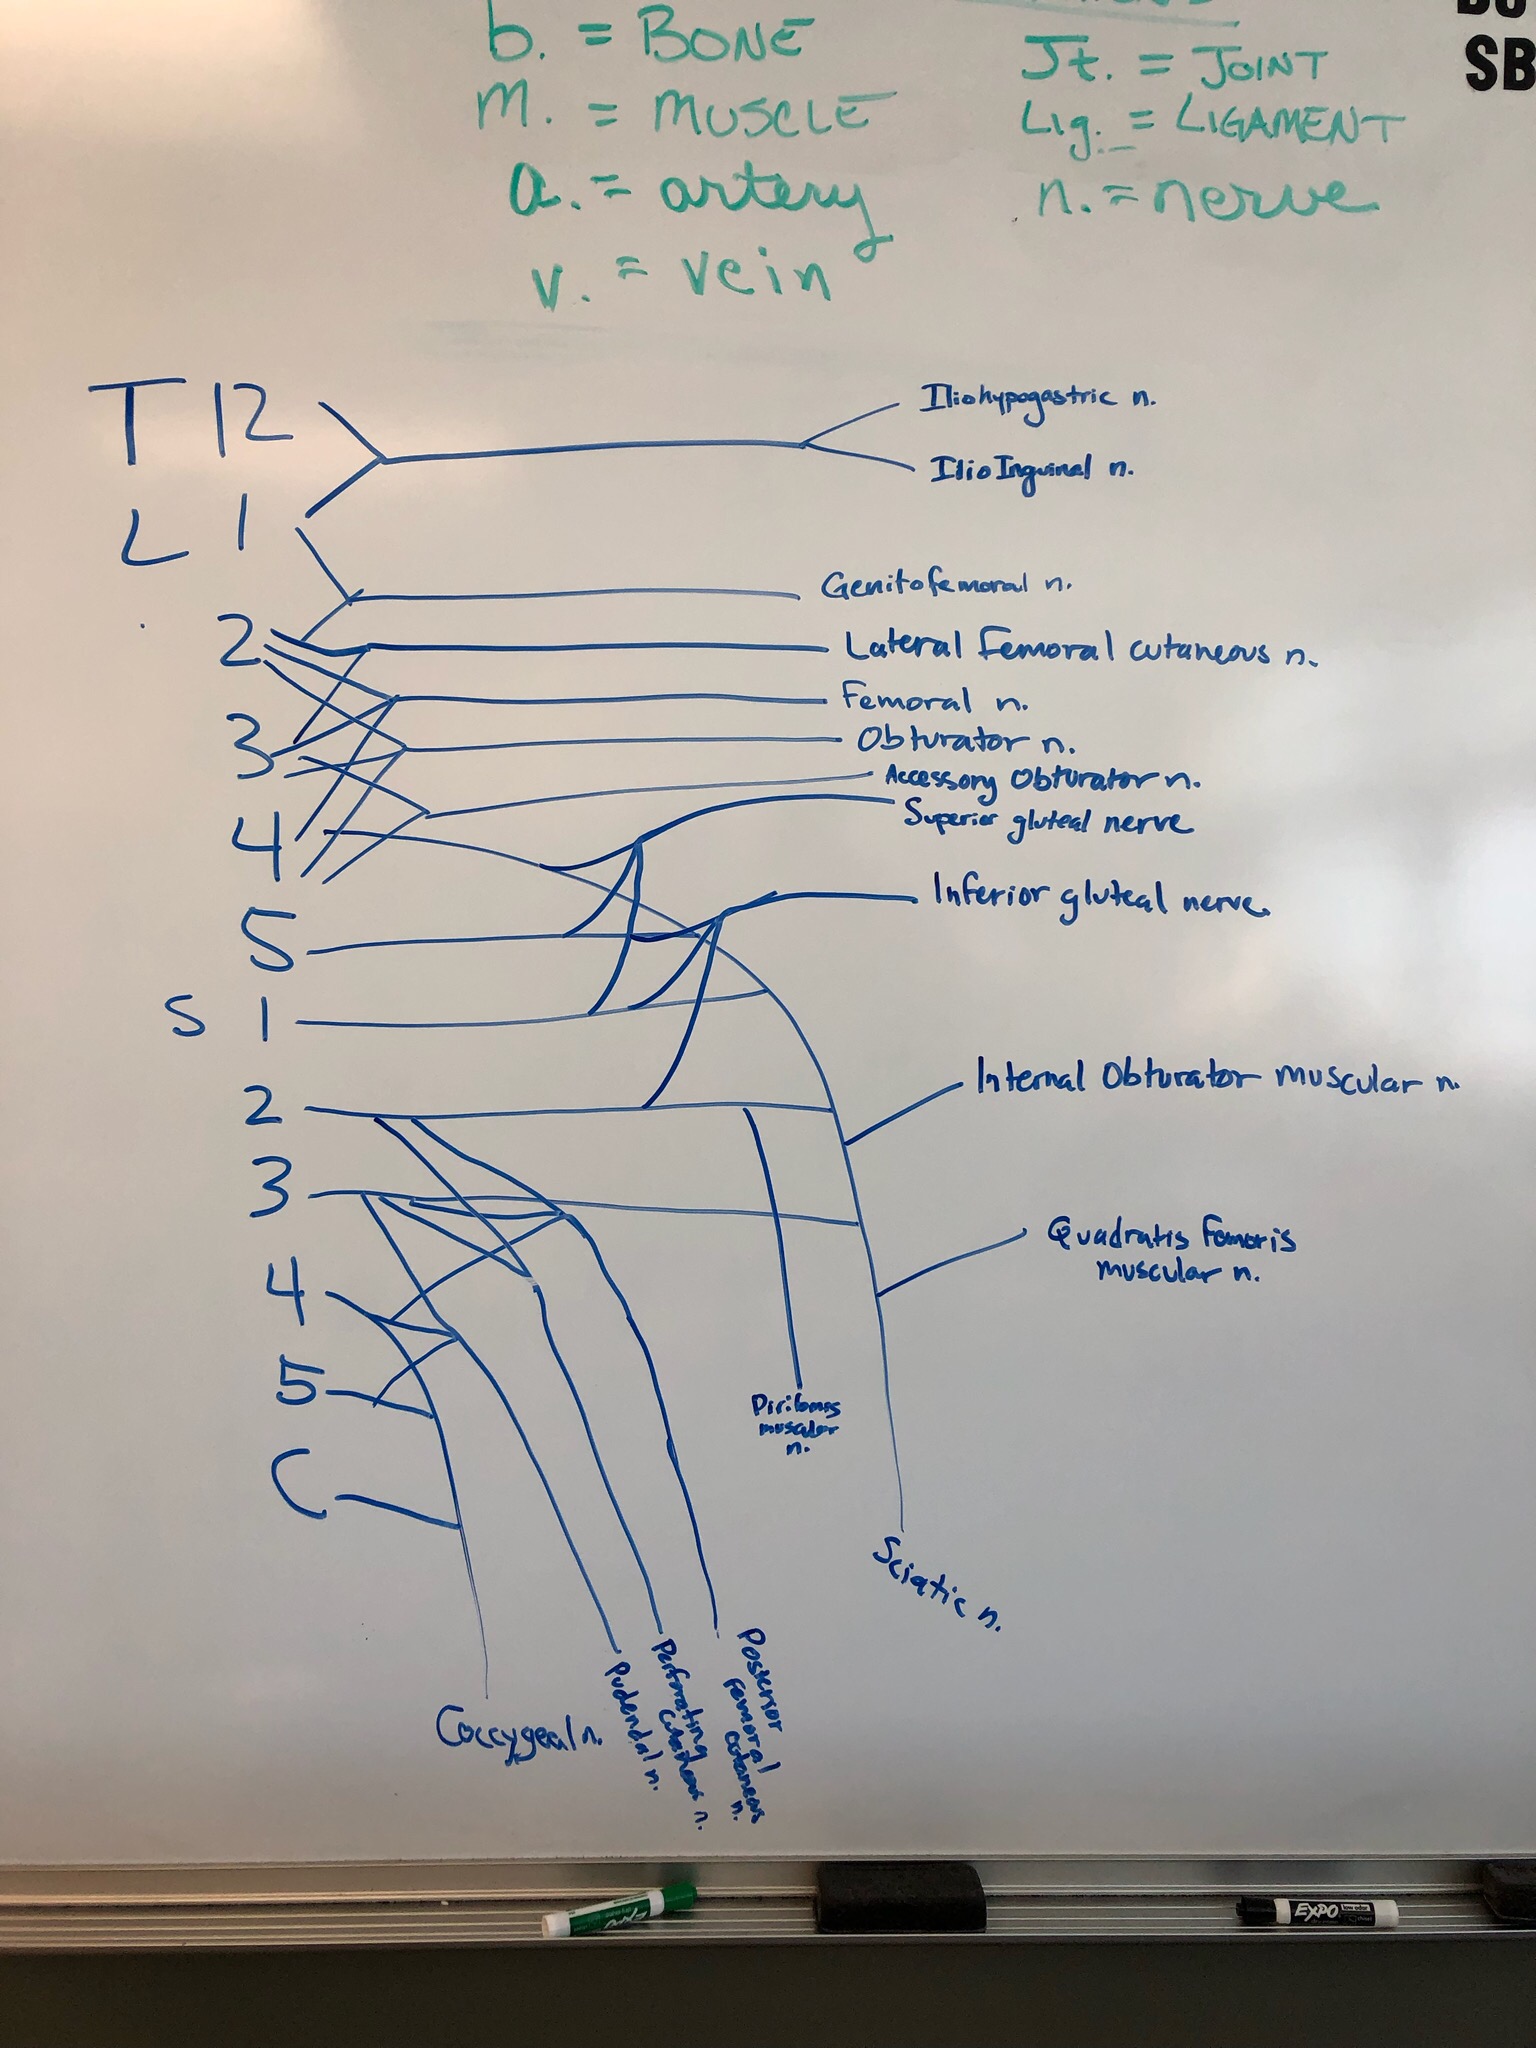 b. = BONE
m. = MUSCLE
a. = artery
v. = vein
Jt. = JOINT
Lig. = LIGAMENT
n. = nerve
SB
T 12
L 1
2
3
4
5
S 1
2
3
4
5
C
Iliohypogastric n.
IlioInguinal n.
Genitofemoral n.
Lateral Femoral cutaneous n.
Femoral n.
Obturator n.
Accessory Obturator n.
Superior gluteal nerve
Inferior gluteal nerve.
Internal Obturator muscular n.
Quadratis Femoris
muscular n.
Piriformis
muscular
n.
Sciatic n.
Posterior
femoral
cutaneous
n.
Perforating
cutaneous n.
Pudendal n.
Coccygeal n.
EXPO
EXPO